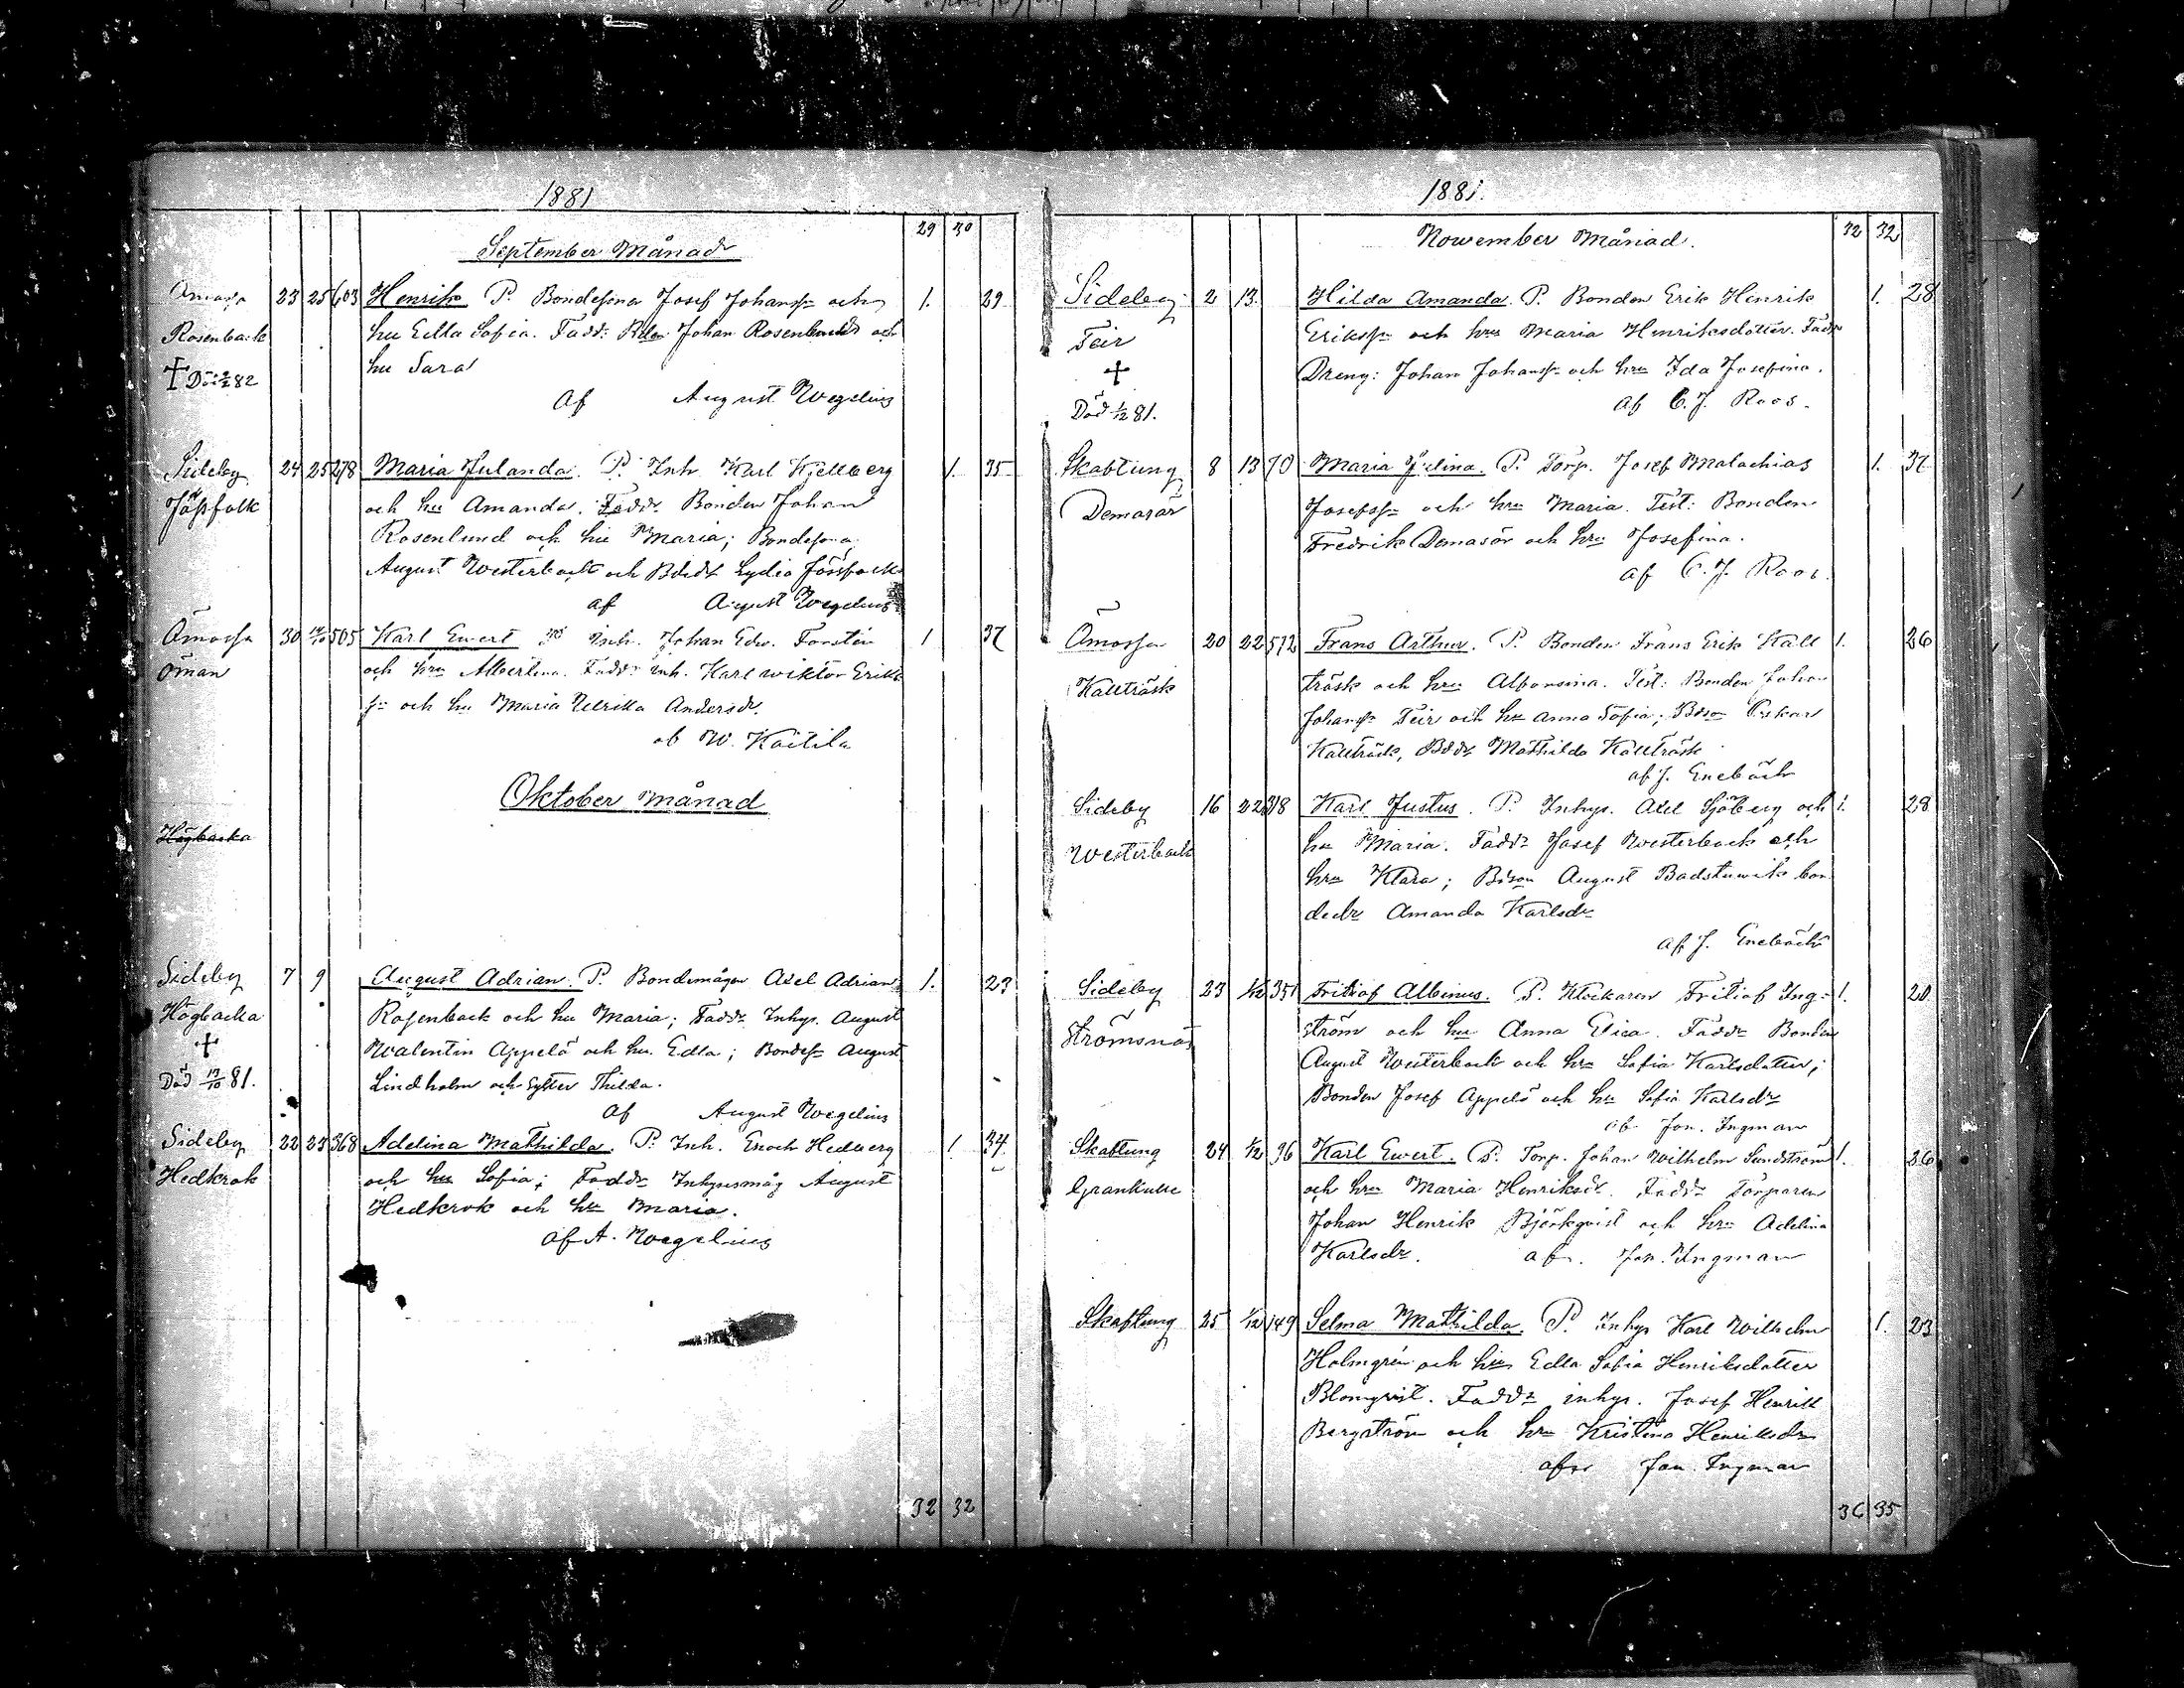 1881
29 30
September Månad
Åmossa 23 25 603 Henrik P. Bondesonen Josef Johanss. och 1. 29
Rosenback hu Edla Sofia. Fadd: Johan Rosenback och
† Död 82 hu Sara
af August Wegelius
Sideby 24 25 278 Maria Julanda. P. Inh. Karl Kjellberg 1. 35
Jåssfolk och hu Amanda. Fadd: Bonden Johan
Rosenlund och hu Maria; Bondeson
August Westerback och Bdr Lydia Jossfolk
af August Wegelius
Åmossa 30 505 Karl Ewert P. Inh. Johan Edw. Forstén 1 37
Öman och hu Albertina. Fadd: inh. Karl Wiktor Eriks
sn och hu Maria Ulrika Andersdr.
af W. Kaitila
Oktober Månad
Högbacka
Sideby 7 9 August Adrian. P. Bondemågen Axel Adrian 1. 23
Högbacka Rosenback och hu Maria; Fadd: Inhys. August
† Walentin Appelö och hu. Edla; Bondes. August
Död 13/10 81. Lindholm och syster Thilda.
af August Wegelius
Sideby 22 23 368 Adelina Mathilda. P. Inh. Enoch Hedberg 1 34
Hedkrok och hu Sofia; Fadd: Inhysesmåg August
Hedkrok och hu Maria.
af A. Wegelius
32 32
1881.
32 32
November Månad.
Sideby 2 13 Hilda Amanda. P. Bonden Erik Henrik 1. 28
Teir Erikss. och hru Maria Henriksdotter. Fadd
† Dreng: Johan Johanss. och hru Ida Josefina.
Död 1/12 81. af C. J. Roos.
Skaftung 8 13 70 Maria Jelina. P. Torp. Josef Malachias 1. 37
Demasör Josefss. och hru Maria. Test: Bonden
Fredrik Demasör och hru Josefina.
af C. J. Roos.
Åmossa 20 22 572 Frans Arthur. P. Bonden Frans Erik Käll 1. 26
Källträsk träsk och hru Alfonsina. Test: Bonden Johan
Johanss. Teir och hu Anna Sofia; Bdson Oskar
Källträsk, Bddr Mathilda Källträsk
af J. Enebäck
Sideby 16 22 318 Karl Justus. P. Inhys. Axel Sjöberg och 1. 28
Westerback hu Maria. Fadd: Josef Westerback och
hru Klara; Bdson August Badstuwik bon
dedr Amanda Karlsdr
af J. Enebäck
Sideby 23 1/12 351 Fritiof Albinus. P. Klockaren Fritiof Ing- 1. 20
Strömsnäs ström och hu Anna Elisa. Fadd: Bonden
August Westerback och hru Sofia Karlsdotter;
Bonden Josef Appelö och hu Sofia Karlsdr
af Jon. Ingman
Skaftung 24 1/12 96 Karl Ewert. P. Torp. Johan Wilhelm Sundström 1. 26
Grankulla och hru Maria Henriksdr. Fadd: Torparen
Johan Henrik Björkqvist och hru Adelina
Karlsdr. af. Jon. Ingman
Skaftung 25 1/12 149 Selma Mathilda. P. Inhys Karl Wilhelm 1. 23
Holmgrén och hru Edla Sofia Henriksdotter
Blomqvist. Fadd: inhys. Josef Henrik
Bergström och hru Kristina Henriksdr
af Jon. Ingman
36 35